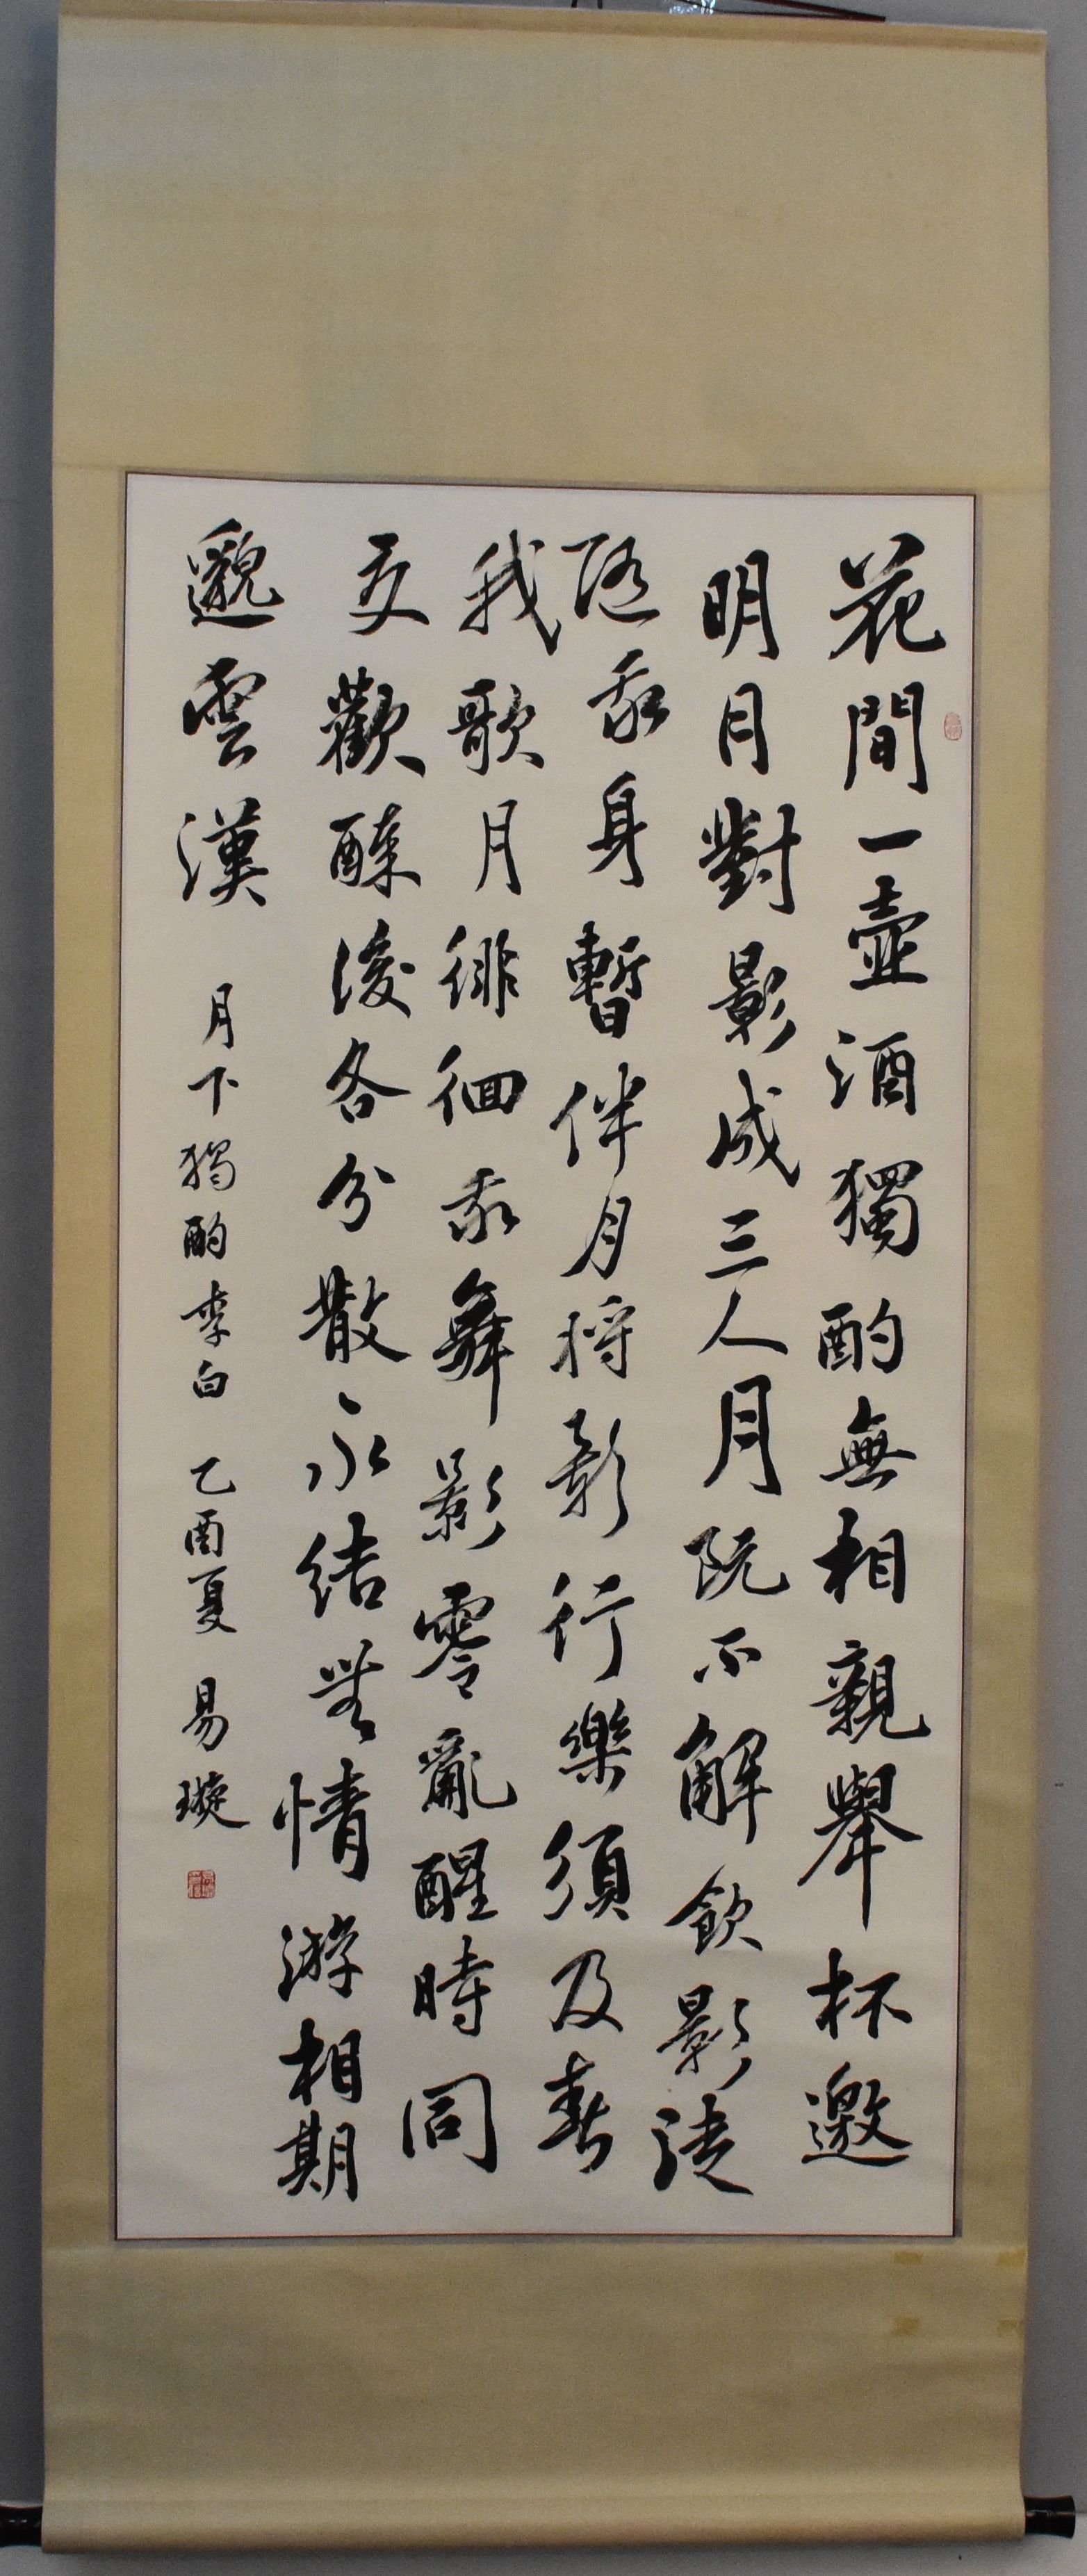 花間一壺酒獨酌無相親舉杯邀
明月對影成三人月既不解飲影徒
隨我身暫伴月將影行樂須及春
我歌月徘徊我舞影零亂醒時同
交歡醉後各分散永結無情游相期
邈雲漢 月下獨酌李白 乙酉夏 易璇